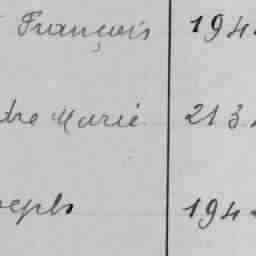 François 194
dre Marie 213
seph 194